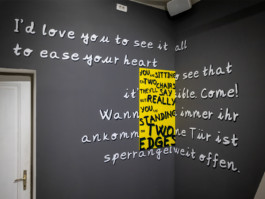 I'd love you to see it all
to ease your heart
to see that
it's ible. Come!
Wann immer ihr
ankomm ne Tür ist
sperrangelweit offen.
YOU SITTING
TWO
CHAIRS
THEY'LL SAY
BUT REALLY
YOU
STANDING
TWO
EDGES